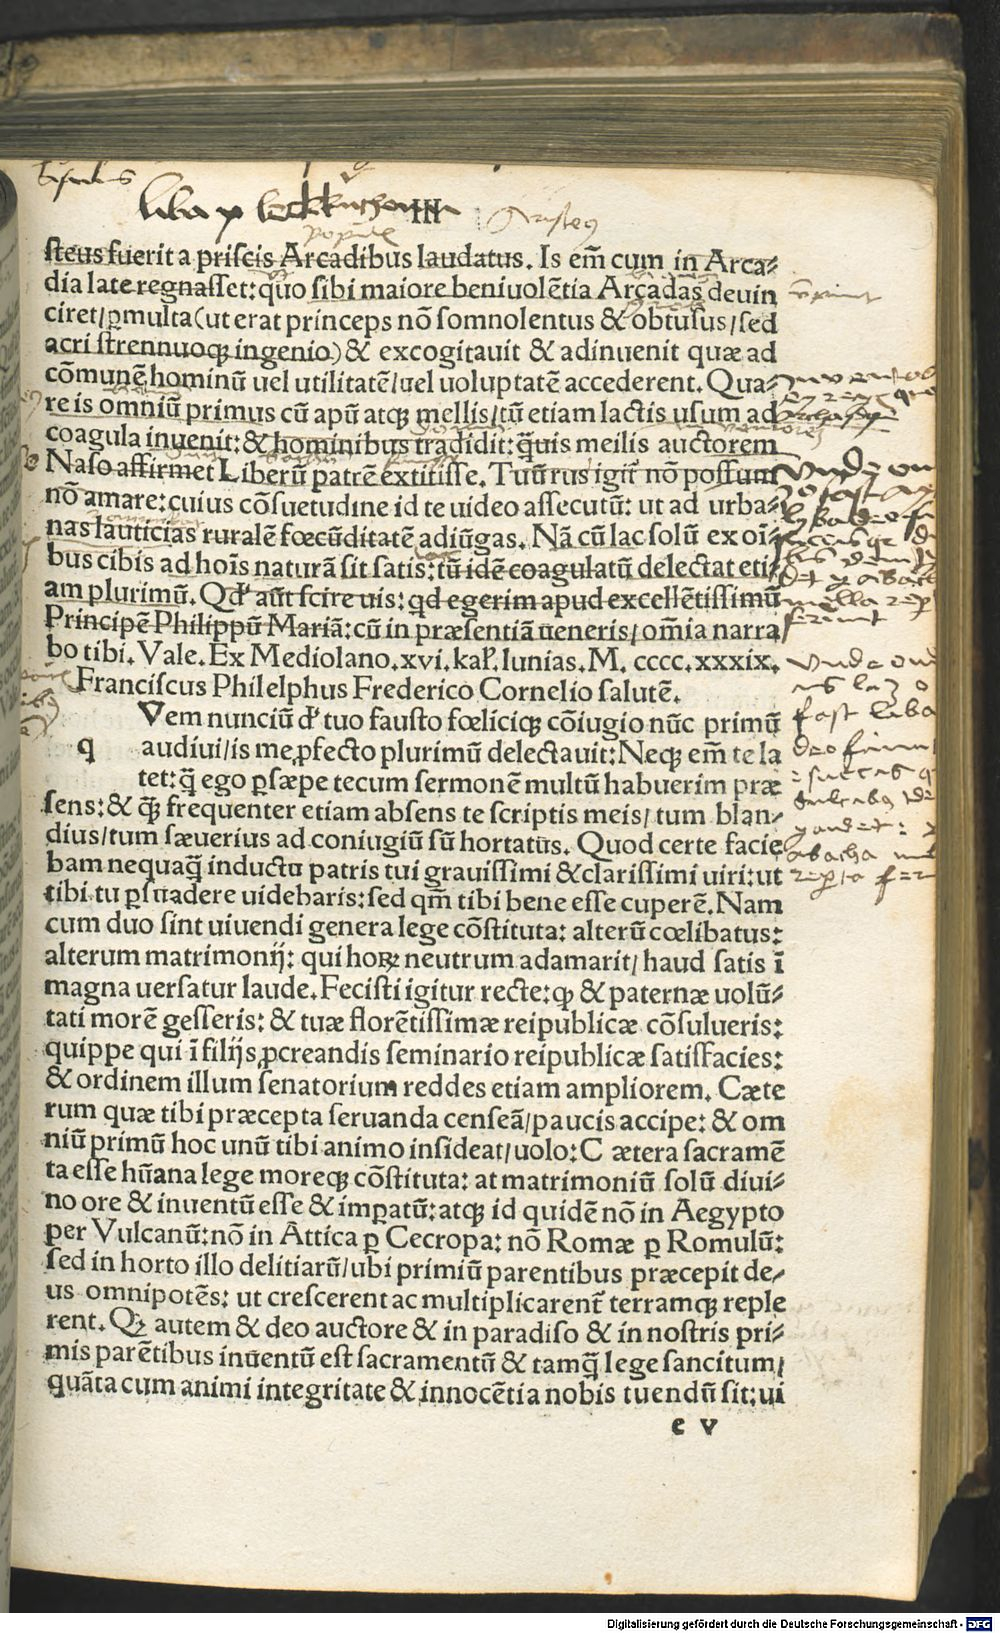 III
steus fuerit a priscis Arcadibus laudatus. Is em̃ cum in Arca-
dia late regnasset: quo sibi maiore beniuolẽtia Arcadas deuin
ciret/ ꝑmulta (ut erat princeps nõ somnolentus & obtusus/ sed
acri strennuoqꝫ ingenio) & excogitauit & adinuenit quæ ad
cõmunẽ hominũ uel utilitatẽ/ uel uoluptatẽ accederent. Qua-
re is omniũ primus cũ apũ atqꝫ mellis/ tũ etiam lactis usum ad
coagula inuenit: & hominibus tradidit: q̃uis mellis auctorem
Naso affirmet Liberũ patrẽ extitisse. Tuũ rus igit̃ nõ possum
nõ amare: cuius cõsuetudine id te uideo assecutũ: ut ad urba-
nas lauticias ruralẽ fœcũditatẽ adiũgas. Nã cũ lac solũ ex oĩ-
bus cibis ad hoĩs naturã sit satis: tũ idẽ coagulatũ delectat eti-
am plurimũ. Qđ aũt scire uis: qd egerim apud excellẽtissimũ
Principẽ Philippũ Mariã: cũ in præsentiã ueneris/ om̃ia narra
bo tibi. Vale. Ex Mediolano. xvi. kał. Iunias. M. cccc. xxxix.
Franciscus Philelphus Frederico Cornelio salutẽ.
q Vem nunciũ đ tuo fausto fœliciqꝫ cõiugio nũc primũ
audiui/ is me ꝓfecto plurimũ delectauit: Neqꝫ em̃ te la
tet: q̃ ego ꝑsæpe tecum sermonẽ multũ habuerim præ
sens: & qꝫ̃ frequenter etiam absens te scriptis meis/ tum blan-
dius/ tum sæuerius ad coniugiũ sũ hortatus. Quod certe facie
bam nequaq̃ inductu patris tui grauissimi & clarissimi uiri: ut
tibi tu ꝑsuadere uidebaris: sed qm̃ tibi bene esse cuperẽ. Nam
cum duo sint uiuendi genera lege cõstituta: alterũ cœlibatus:
alterum matrimonij: qui hoꝝ neutrum adamarit/ haud satis ĩ
magna uersatur laude. Fecisti igitur recte: qꝫ & paternæ uolũ-
tati morẽ gesseris: & tuæ florẽtissimæ reipublicæ cõsulueris:
quippe qui ĩ filijs ꝓcreandis seminario reipublicæ satisfacies:
& ordinem illum senatorium reddes etiam ampliorem. Cæte
rum quæ tibi præcepta seruanda censeã/ paucis accipe: & om
niũ primũ hoc unũ tibi animo insideat/ uolo: Cætera sacramẽ
ta esse hũana lege moreqꝫ cõstituta: at matrimoniũ solũ diui-
no ore & inuentũ esse & imꝑatũ: atqꝫ id quidẽ nõ in Aegypto
per Vulcanũ: nõ in Attica ꝑ Cecropa: nõ Romæ ꝑ Romulũ:
sed in horto illo delitiarũ/ ubi primiũ parentibus præcepit de-
us omnipotẽs: ut crescerent ac multiplicarent̃ terramqꝫ reple
rent. Qꝫ autem & deo auctore & in paradiso & in nostris pri-
mis parẽtibus inuentũ est sacramentũ & tamq̃ lege sancitum/
quãta cum animi integritate & innocẽtia nobis tuendũ sit: ui
e v
Digitalisierung gefördert durch die Deutsche Forschungsgemeinschaft - DFG